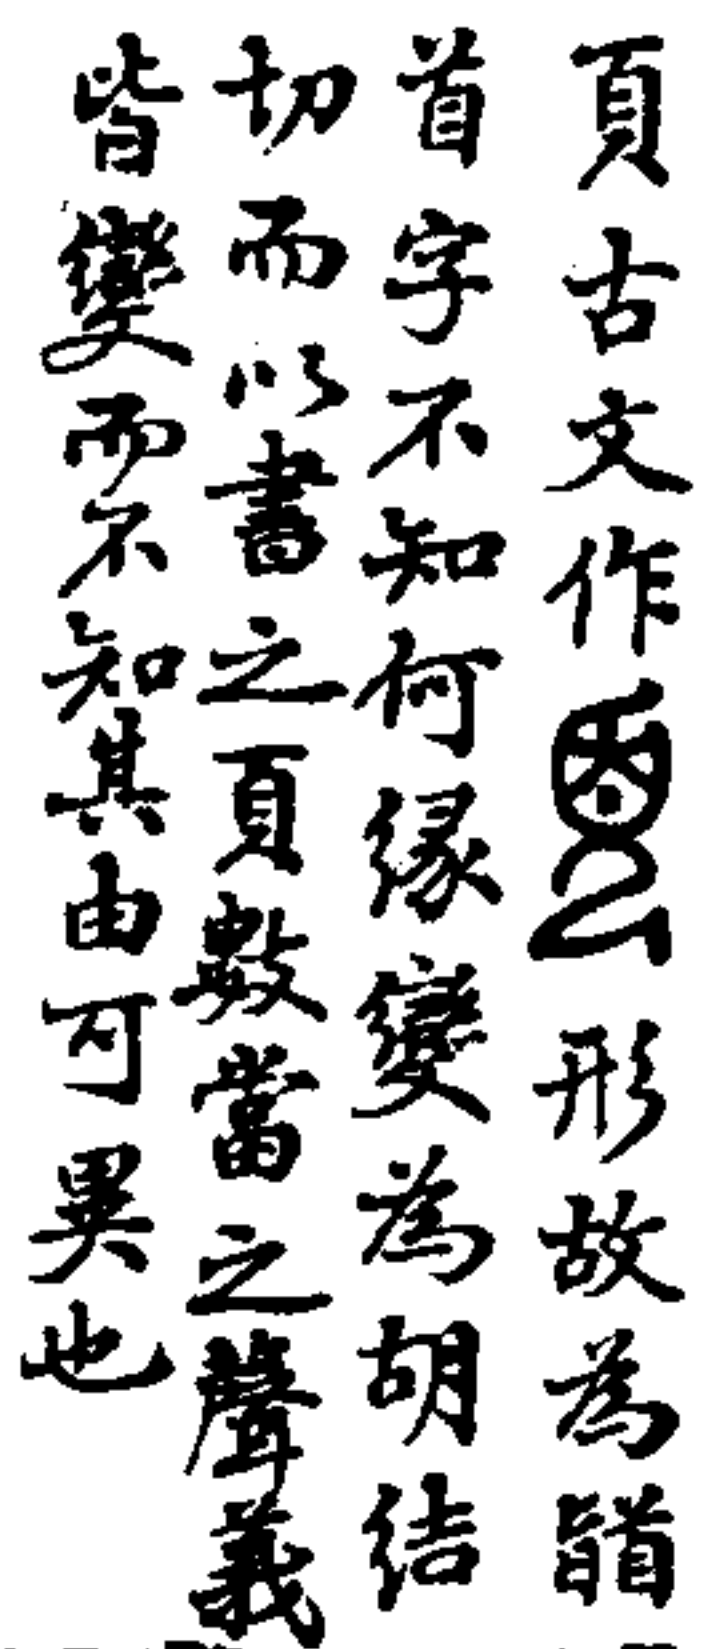 頁古文作形故為䭫
首字不知何緣變為胡結
切而以書之頁數當之聲義
皆變而不知其由可異也